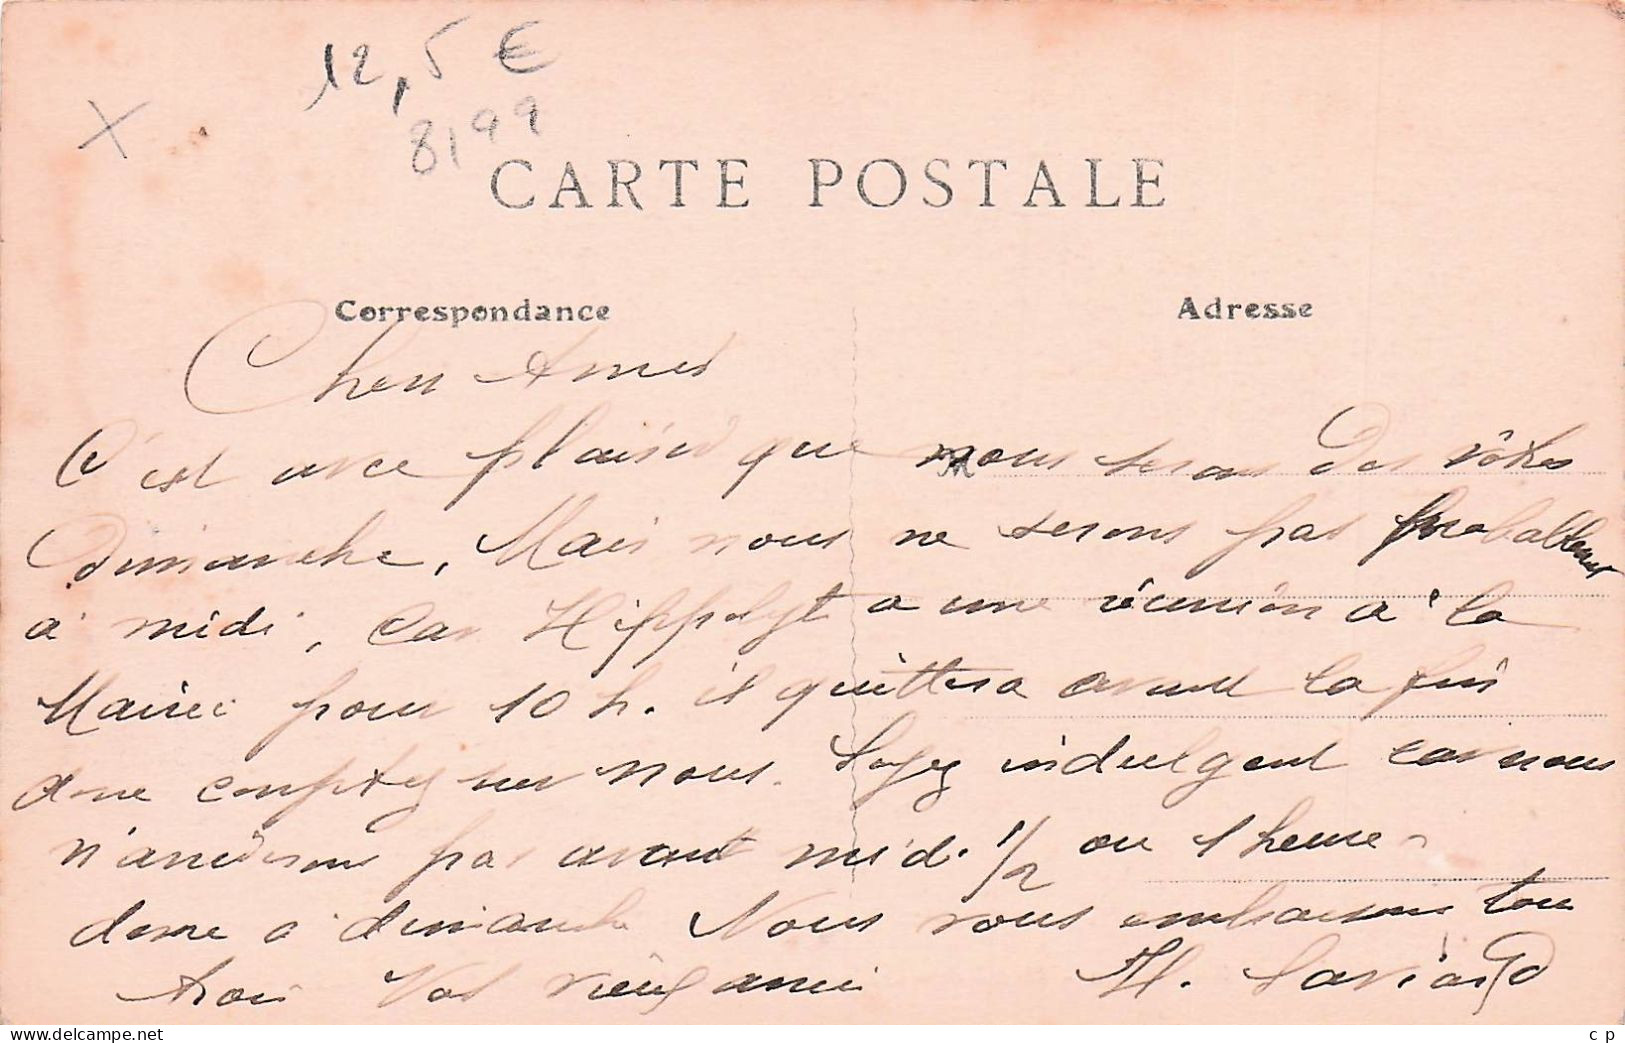 12,5 €
8199
CARTE POSTALE
Correspondance
Adresse
Chers Amis
C'est avec plaisir que nous serons des vôtres
Dimanche, Mais nous ne serons pas probablement
à midi, car Hippolyt a une réunion à la
Mairie pour 10 h. il quittera avant la fin
donc comptez sur nous. Soyez indulgent car nous
n'arriverons pas avant midi 1/2 ou 1 heure
donc à dimanche Nous vous embrassons tous
trois Vos vieux amis H. Saviard
c p